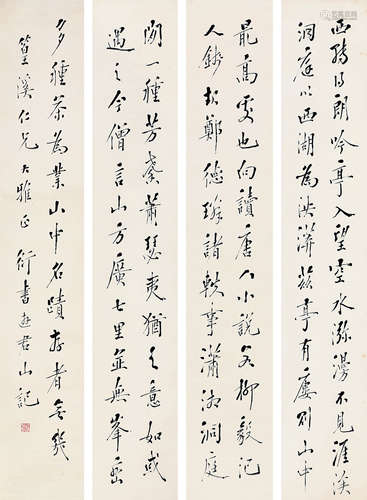 西殤得朗吟亭入望空水瀰漫不見涯涘
洞庭以西湖為洪濛茲亭有廔則山中
最高處也向讀唐人小說如柳毅記
人錢起鄭德璘諸軼事瀟湘洞庭
間一種芳馨蕭瑟夷猶之意如或
遇之今僧言山方廣七里並無峯巒
多種茶為業山中名蹟存者無幾
篁溪仁兄大雅正 衍書遊君山記